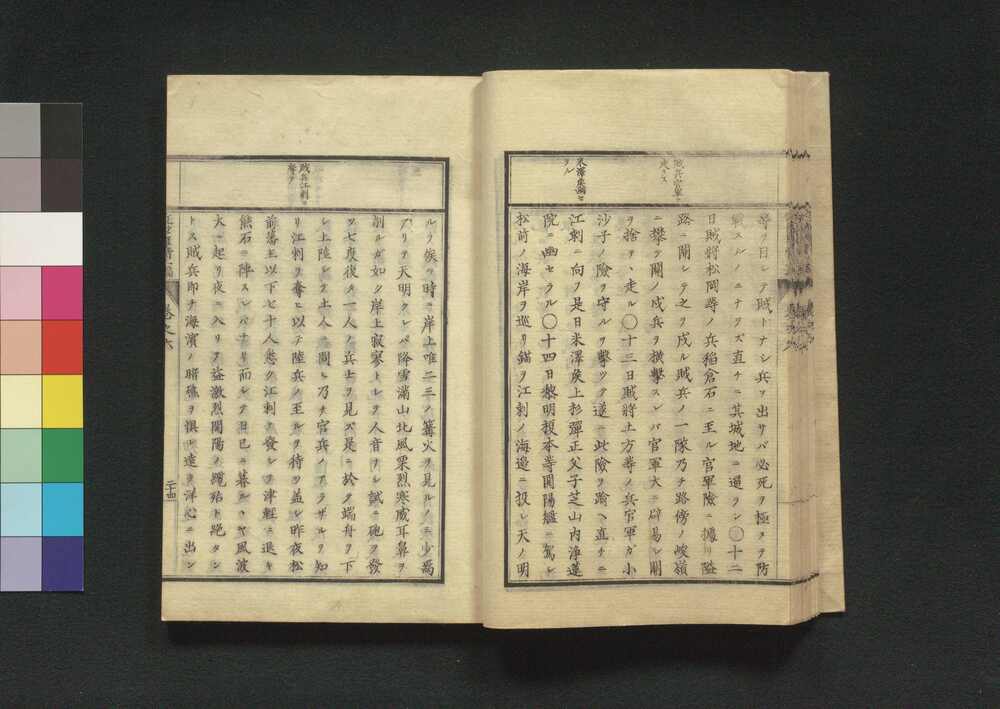 賊兵官軍ヲ
走ラス
米澤東湖セ
ラル
等ヲ目シテ賊トナシ兵ヲ出サバ必死ヲ極メテ防
戰スルノミナラズ直チニ其城地ニ逼ラン〇十二
日賊將松岡等ノ兵稻倉石ニ至ル官軍險ニ據リ隘
路ニ關シテ之ヲ戍ル賊兵ノ一隊乃チ路傍ノ峻嶺
ニ攀ヲ關ノ戍兵ヲ横擊スレバ官軍大ニ辟易シ關
ヲ捨テヽ走ル〇十三日賊將土方等ノ兵官軍ガ小
沙子ノ險ヲ守ルヲ擊ツテ遂ニ此險ヲ踰ヘ直チニ
江刺ニ向フ是日米澤矦上杉彈正父子芝山内淨蓮
院ニ幽セラル〇十四日黎明榎本等開陽艦ニ駕シ
松前ノ海岸ヲ巡リ錨ヲ江刺ノ海邉ニ投シ天ノ明
賊兵江刺ヲ
奪フ
ルヲ俟ツ時ニ岸上唯二三ノ篝火ヲ見ルノミ少焉
アリテ天明クレバ降雪滿山北風栗烈寒威耳鼻ヲ
削ルガ如ク岸上寂寥トシテ人音ナシ試ニ砲ヲ發
ツ七度後チ一人ノ兵士ヲ見ズ是ニ於テ端舟ヲ下
シ上陸シテ土人ニ問ヒ乃チ官兵ノアラザルヲ知
リ江刺ヲ奪ヒ以テ陸兵ノ至ルヲ待ツ蓋シ昨夜松
前藩主以下七十人悉ク江刺ヲ發シテ津輕ニ退キ
熊石ニ陣スレバナリ而シテ日已ニ暮ルヽヤ風波
大ニ起リ夜ニ入リテ益激烈開陽ノ纜殆ド絶タン
トス賊兵即チ海濱ノ暗礁ヲ惧レ遠ク洋心ニ出ン
卷之六
二十四